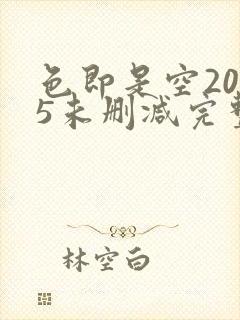 色即是空20
5未删减完整
林空白